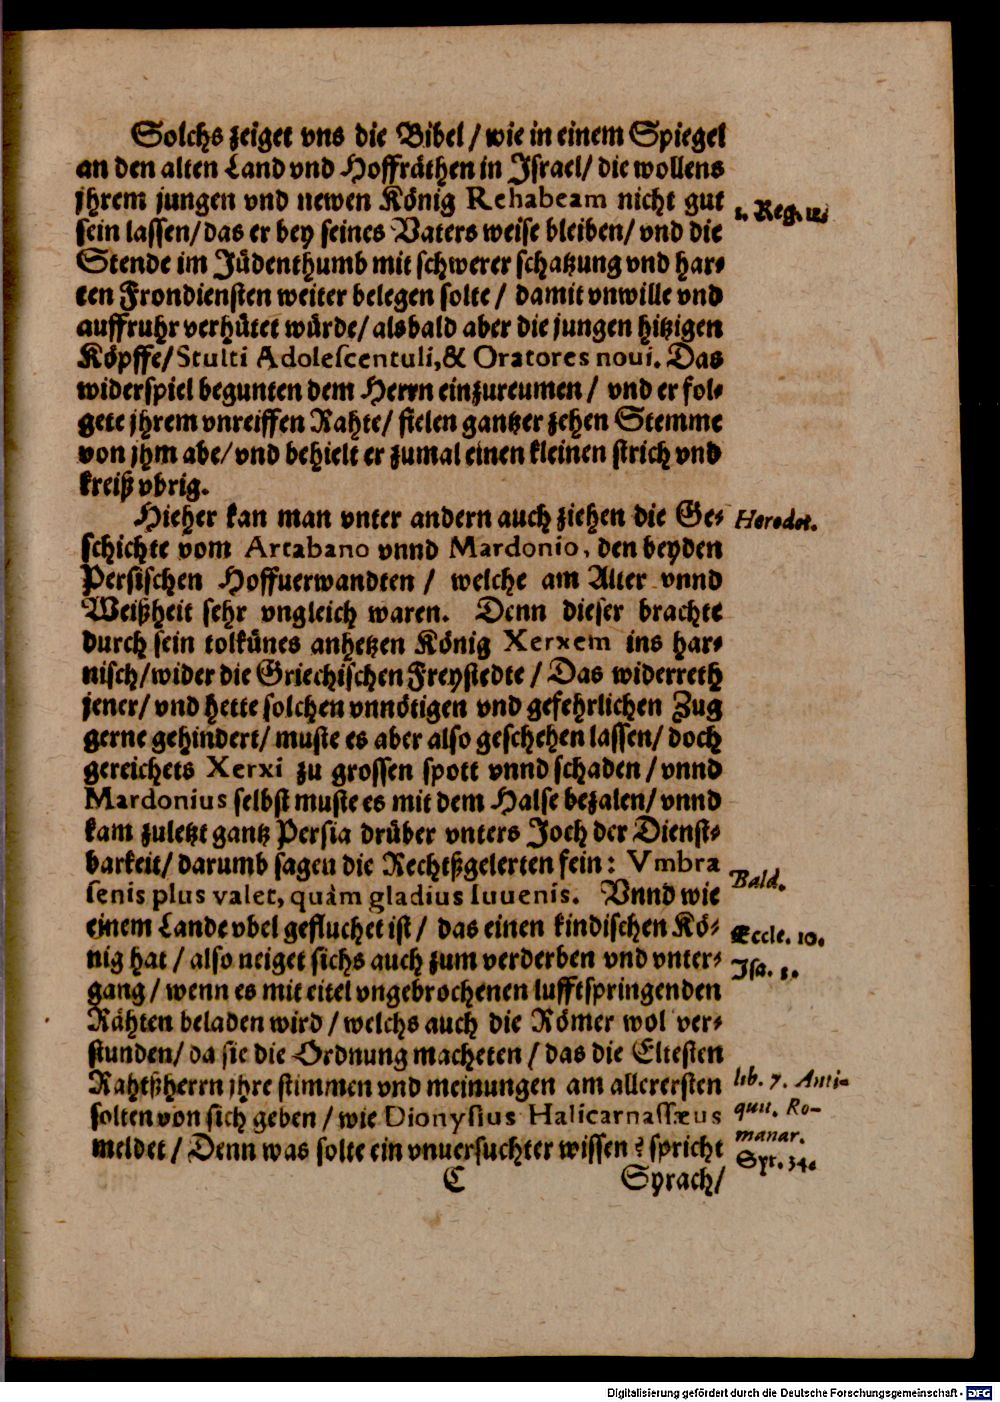 Solchs zeiget vns die Bibel / wie in einem Spiegel
an den alten Land vnd Hoffräthen in Israel / die wollens
jhrem jungen vnd newen König Rehabeam nicht gut
1. Reg. 12.
sein lassen / das er bey seines Vaters weise bleiben / vnd die
Stende im Jüdenthumb mit schwerer schatzung vnd har⸗
ten Frondiensten weiter belegen solte / damit vnwille vnd
auffruhr verhütet würde / alsbald aber die jungen hitzigen
Köpffe / Stulti Adolescentuli, & Oratores noui. Das
widerspiel begunten dem Herrn einzureumen / vnd er fol⸗
gete jhrem vnreiffen Rahte / fielen gantzer zehen Stemme
von jhm abe / vnd behielt er zumal einen kleinen strich vnd
kreiß vbrig.
Hieher kan man vnter andern auch ziehen die Ge⸗
Herodot.
schichte vom Artabano vnnd Mardonio, den beyden
Persischen Hoffuerwandten / welche am Alter vnnd
Weißheit sehr vngleich waren. Denn dieser brachte
durch sein tolkünes anhetzen König Xerxem ins har⸗
nisch / wider die Griechischen Freystedte / Das widerreth
jener / vnd hette solchen vnnötigen vnd gefehrlichen Zug
gerne gehindert / muste es aber also geschehen lassen / doch
gereichets Xerxi zu grossen spott vnnd schaden / vnnd
Mardonius selbst muste es mit dem Halse bezalen / vnnd
kam zuletzt gantz Persia drüber vnters Joch der Dienst⸗
barkeit / darumb sagen die Rechtßgelerten fein: Vmbra
Bald.
senis plus valet, quàm gladius Iuuenis. Vnnd wie
einem Lande vbel gefluchet ist / das einen kindischen Kö⸗
Eccle. 10.
nig hat / also neiget sichs auch zum verderben vnd vnter⸗
Isa. 3.
gang / wenn es mit eitel vngebrochenen lufftspringenden
Rähten beladen wird / welchs auch die Römer wol ver⸗
stunden / da sie die Ordnung macheten / das die Eltesten
Rahtßherrn jhre stimmen vnd meinungen am allerersten
lib. 7. Anti-
solten von sich geben / wie Dionysius Halicarnassæus
quit. Ro-
manar.
meldet / Denn was solte ein vnuersuchter wissen? spricht
Syr. 34.
C
Sprach /
Digitalisierung gefördert durch die Deutsche Forschungsgemeinschaft - DFG